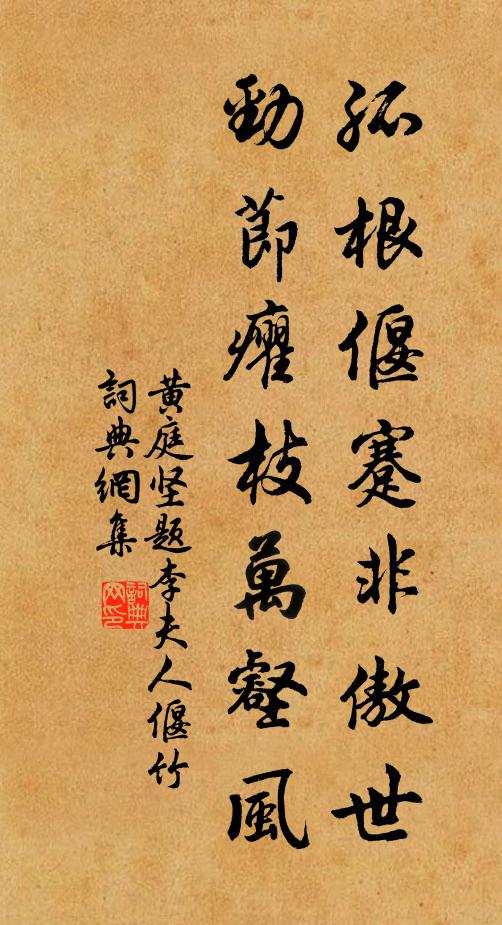 孤根偃蹇非傲世
勁節癯枝萬壑風
黃庭坚题李夫人偃竹
詞典網集
詞典網印